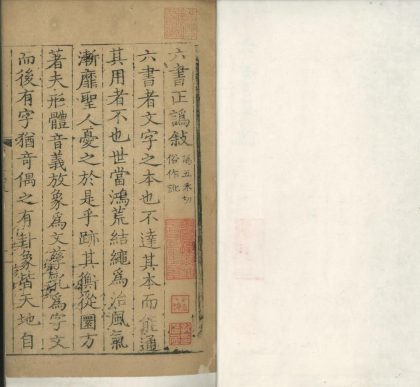 六書正譌敍
譌五禾切
俗作訛
六書者文字之本也不達其本而能通
其用者不也世當鴻荒結繩爲治風氣
漸靡聖人憂之於是乎跡其衡從圜方
著夫形體音義放象爲文孳乳爲字文
而後有字猶奇偶之有卦象皆天地自